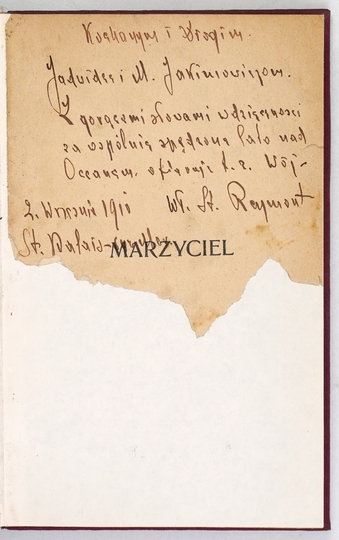 Kochanym i Drogim.
Jadwidze i M. Jakimowiczom.
Z gorącemi słowami wdzięczności
za wspólnie spędzone lato nad
Oceanem. ofiaruje t. z. Wój-
2. Wrzesnia 1910 Wł. St. Reymont
St. Palais-
MARZYCIEL